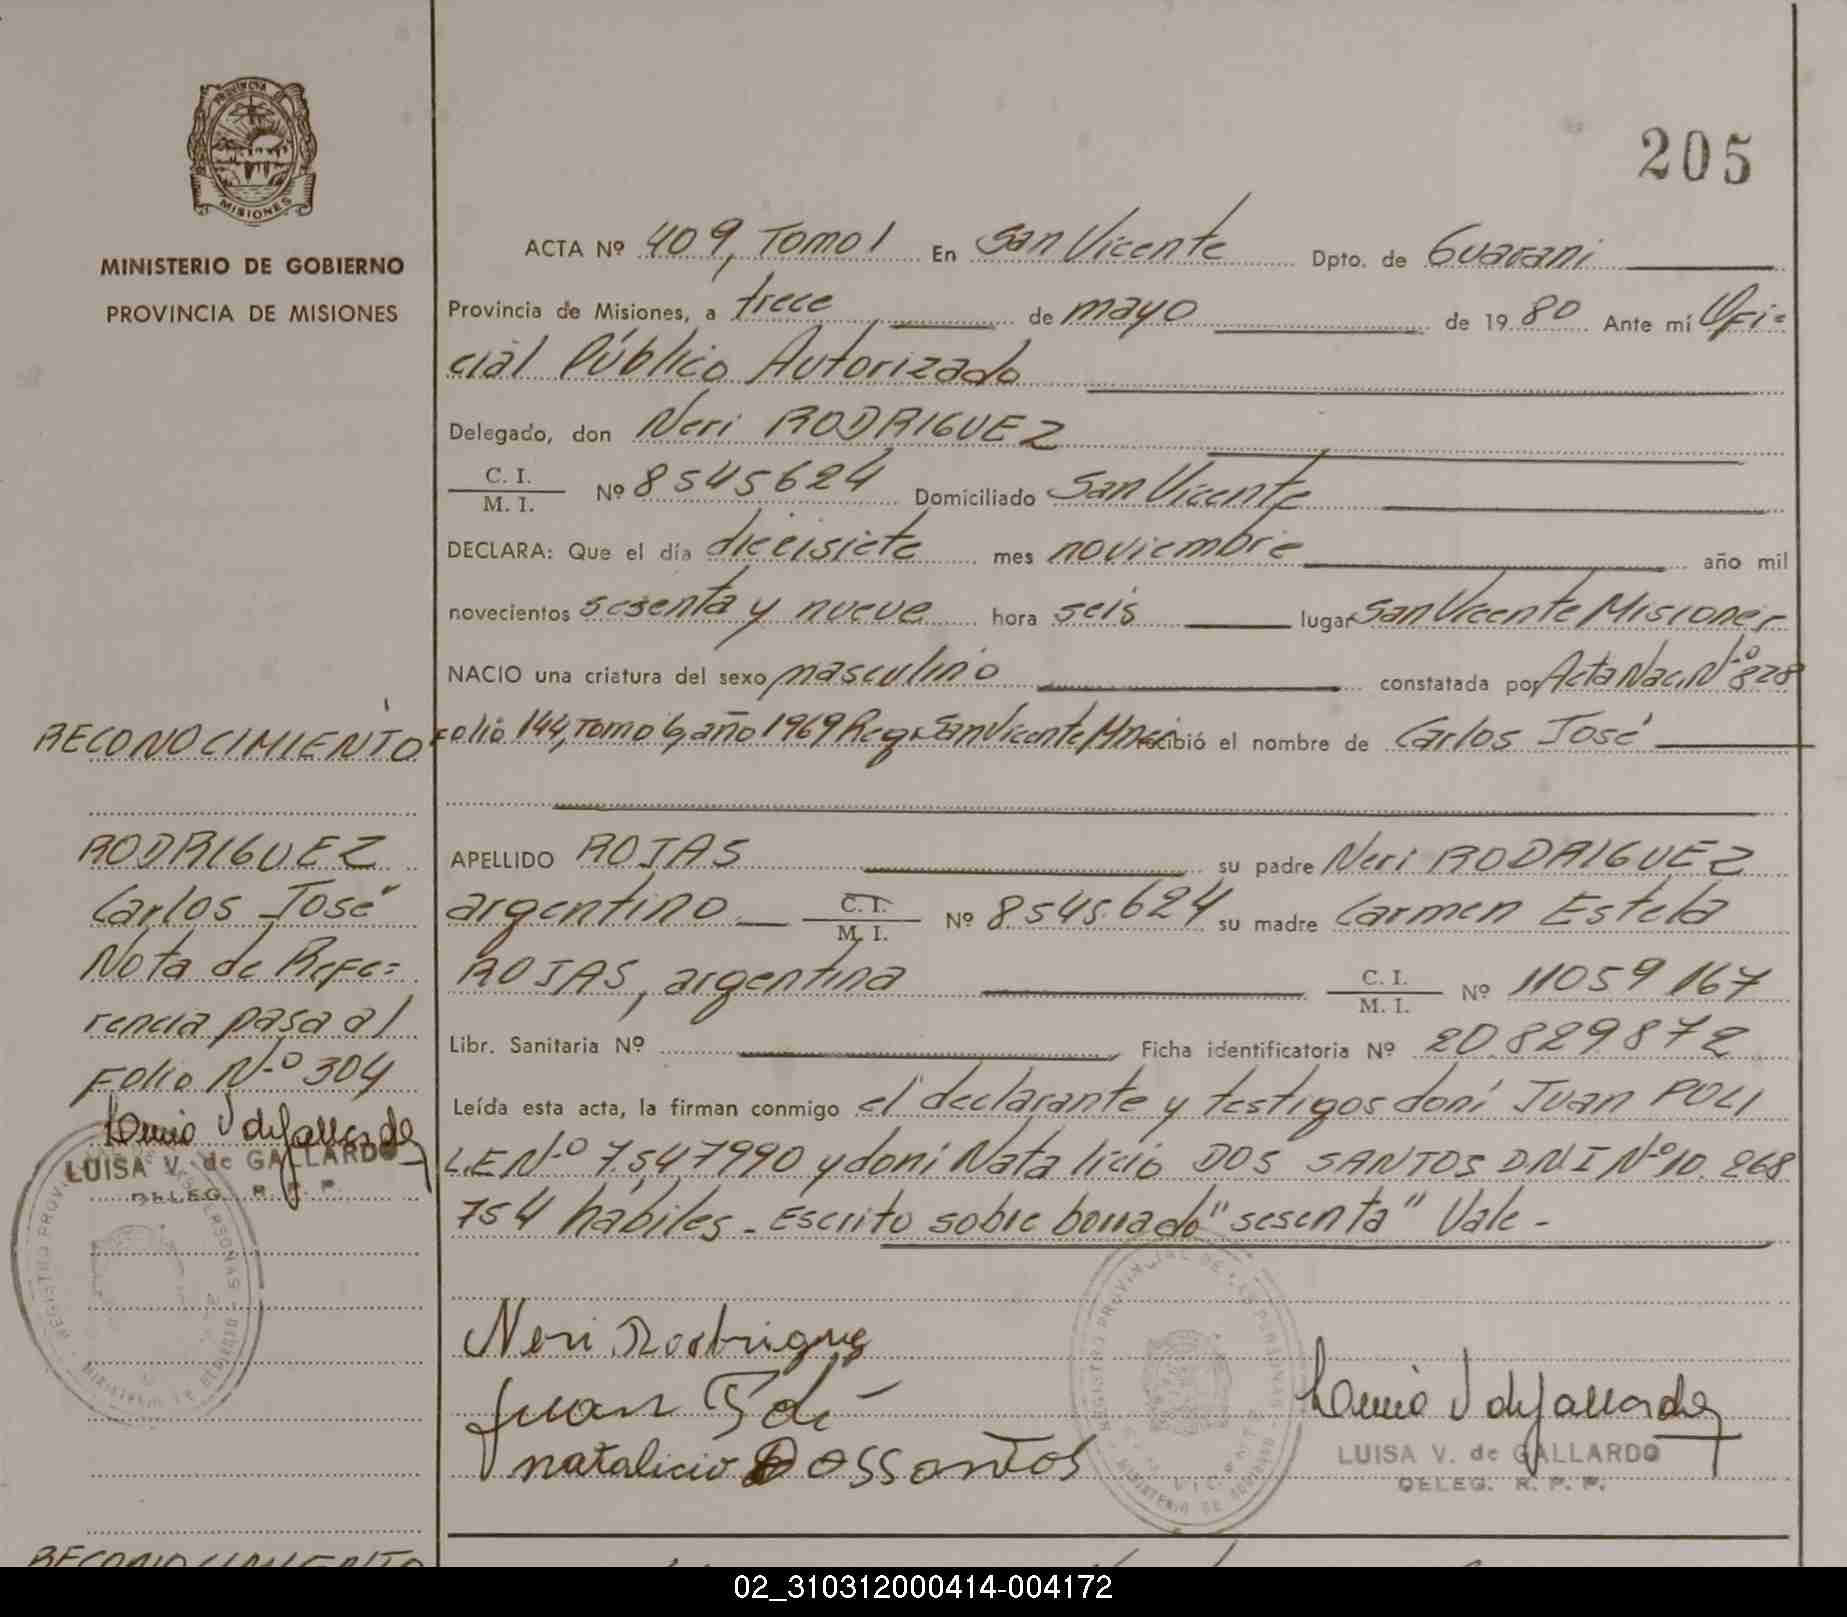 205
PROVINCIA DE
MISIONES
MINISTERIO DE GOBIERNO
PROVINCIA DE MISIONES
ACTA Nº 409, Tomo I En San Vicente Dpto. de Guarani
Provincia de Misiones, a trece de mayo de 1980 Ante mí Ofi=
cial Público Autorizado
Delegado, don Neri RODRIGUEZ
C. I.
M. I. Nº 8545624 Domiciliado San Vicente
DECLARA: Que el día diecisiete mes noviembre año mil
novecientos sesenta y nueve hora seis lugar San Vicente Misiones
NACIO una criatura del sexo masculino constatada por Acta Nac. Nº 828
Folio 144, Tomo 6, año 1969 Reg. San Vicente Mnes recibió el nombre de Carlos José
APELLIDO ROJAS su padre Neri RODRIGUEZ
argentino C. I.
M. I. Nº 8.545.624 su madre Carmen Estela
ROJAS, argentina C. I.
M. I. Nº 11059167
Libr. Sanitaria Nº Ficha identificatoria Nº 20.829872
Leída esta acta, la firman conmigo el declarante y testigos doni Juan POLI
L.E Nº 7.547990 y doni Natalicio DOS SANTOS D N I Nº 10.268
754 hábiles - Escrito sobre borrado "sesenta" Vale -
RECONOCIMIENTO
RODRIGUEZ
Carlos José
Nota de Refe=
rencia pasa al
Folio Nº 304
LUISA V. de GALLARDO
DELEG. R. P. P.
Neri Rodriguez
Juan Poli
natalicio Dossantos
REGISTRO PROVINCIAL DE LAS PERSONAS
MINISTERIO DE GOBIERNO
LUISA V. de GALLARDO
DELEG. R. P. P.
RECONOCIMIENTO
02_310312000414-004172